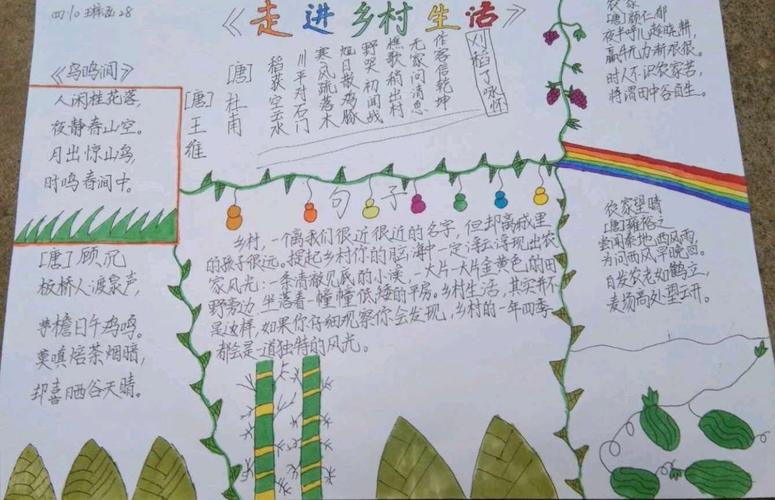 四10 28
《走进乡村生活》
《鸟鸣涧》
人闲桂花落，
夜静春山空。
月出惊山鸟，
时鸣春涧中。
[唐]
王维
[唐]顾况
板桥人渡泉声，
茅檐日午鸡鸣。
莫嗔焙茶烟暗，
却喜晒谷天晴。
刈稻了咏怀
[唐]
杜甫
稻获空云水
川平对石门
寒风疏落木
旭日散鸡豚
野哭初闻战
樵歌稍出村
无家问消息
作客信乾坤
句子
乡村，一个离我们很近很近的名字，但却离城里
的孩子很远。提起乡村你的脑海中一定会浮现出农
家风光：一条清澈见底的小溪，一大片一大片金黄色的田
野旁边，坐落着一幢幢低矮的平房。乡村生活，其实并不
是这样，如果你仔细观察你会发现，乡村的一年四季
都会是一道独特的风光。
农家
[唐]颜仁郁
夜半呼儿趁晓耕，
羸牛无力渐艰难。
时人不识农家苦，
将谓田中谷自生。
农家望晴
[唐]雍裕之
尝闻秦地西风雨，
为问西风早晚回。
白发农老如鹤立，
麦场高处望云开。